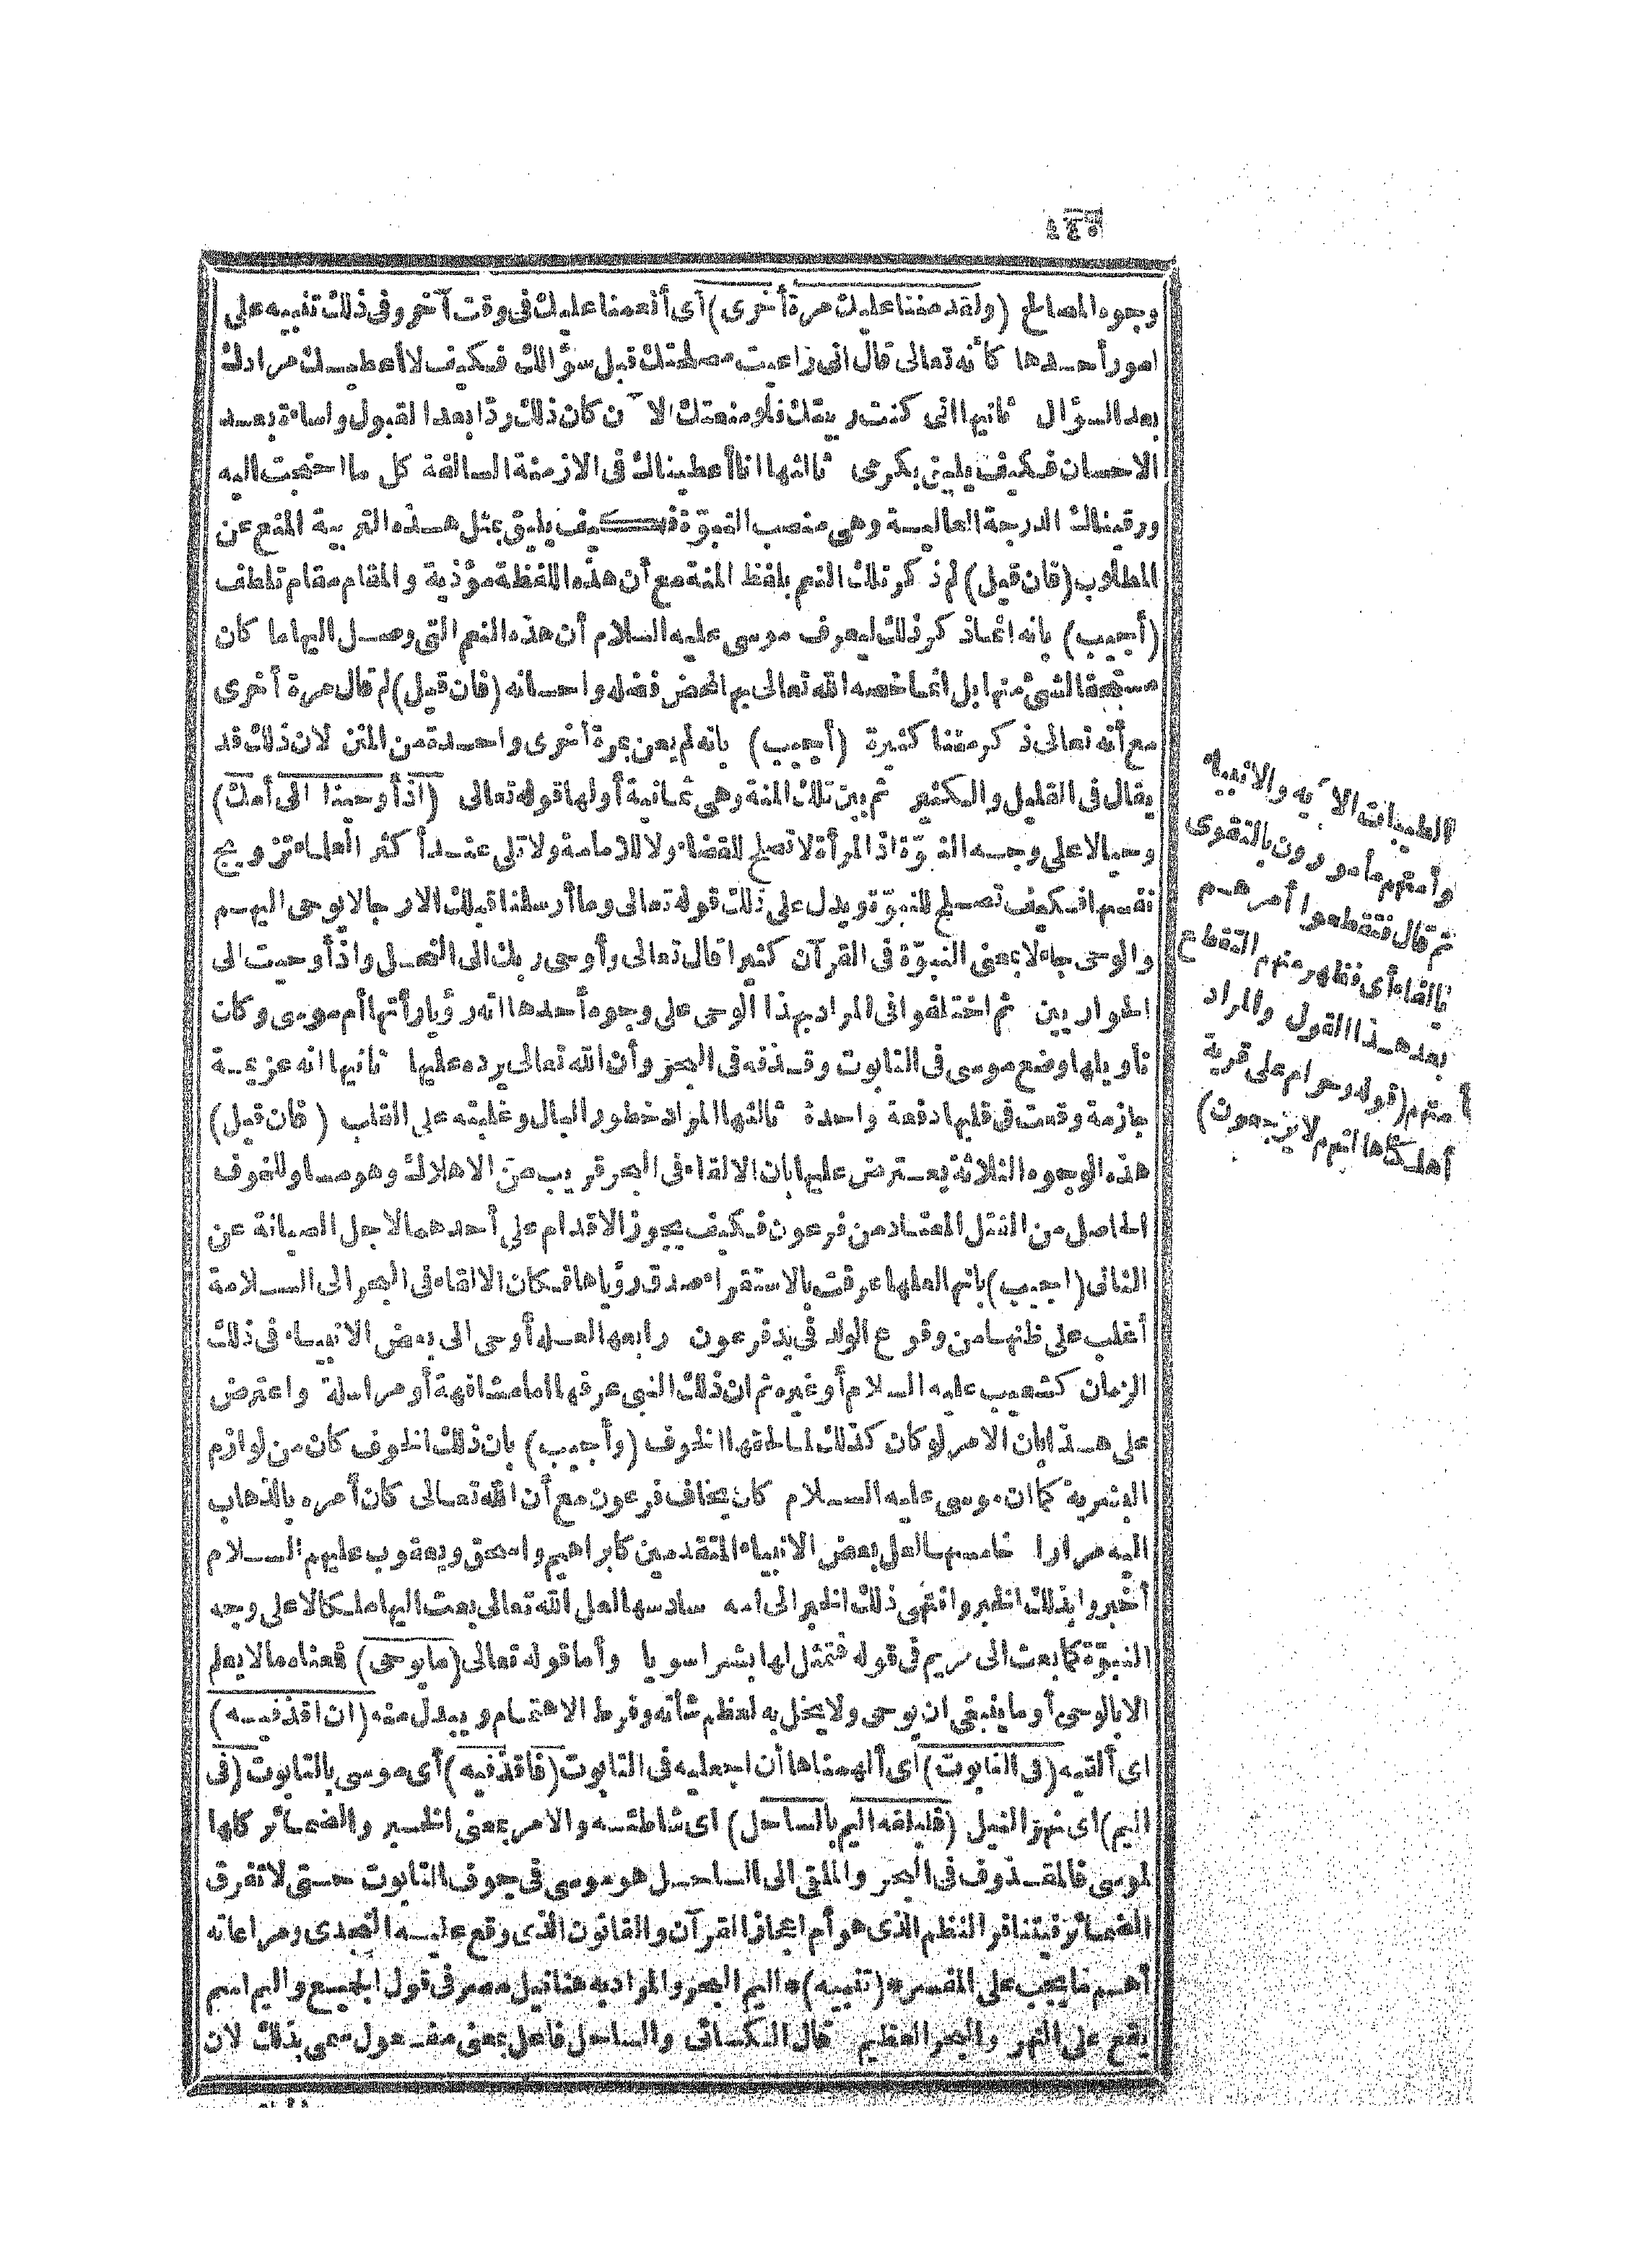 ٤٤٥
وجوه المصالح (ولقد مننا عليك مرة أخرى) أى أنعمنا عليك فى وقت آخر وفى ذلك تنبيه على
امور أحدها كأنه تعالى قال انى راعيت مصلحتك قبل سؤالك فكيف لا أعطيك مرادك
بعد السؤال ثانيها انى كنت ربيتك فلو منعتك الآن كان ذلك ردّا بعد القبول واساءة بعد
الاحسان فكيف يليق بكرمى ثالثها انا أعطيناك فى الازمنة السالفة كل ما احتجت اليه
ورقيناك الدرجة العالية وهى منصب النبوّة فكيف يليق بمثل هذه التربية المنع عن
المطلوب (فان قيل) لم ذكر تلك النعم بلفظ المنة مع أن هذه اللفظة مؤذية والمقام مقام تلطف
(أجيب) بانه انما ذكر ذلك ليعرف موسى عليه السلام أن هذه النعم التى وصل اليها ما كان
مستحقا لشئ منها بل انما خصه الله تعالى بها لمحض فضله واحسانه (فان قيل) لم قال مرة أخرى
مع أنه تعالى ذكر مننا كثيرة (أجيب) بانه لم يعن بمرة أخرى واحدة من المنن لان ذلك قد
يقال فى القليل والكثير ثم بين تلك المنة وهى ثمانية أولها قوله تعالى (اذ أوحينا الى أمك)
وحيا لا على وجه النبوّة اذ المرأة لا تصلح للقضاء ولا للامامة ولا تلى عند أكثر العلماء تزويج
نفسها فكيف تصلح للنبوّة ويدل على ذلك قوله تعالى وما أرسلنا قبلك الا رجالا يوحى اليهم
والوحى جاء لا بمعنى النبوّة فى القرآن كثيرا قال تعالى وأوحى ربك الى النحل واذ أوحيت الى
الحواريين ثم اختلفوا فى المراد بهذا الوحى على وجوه أحدها انه رؤيا رأتها أم موسى وكان
تأويلها وضع موسى فى التابوت وقذفه فى البحر وأن الله تعالى يرده عليها ثانيها انه عزيمة
جازمة وقعت فى قلبها دفعة واحدة ثالثها المراد خطور البال وغلبته على القلب (فان قيل)
هذه الوجوه الثلاثة يعترض عليها بان الالقاء فى البحر قريب من الاهلاك وهو مساو للخوف
الحاصل من القتل المعتاد من فرعون فكيف يجوز الاقدام على أحدهما لاجل الصيانة عن
الثانى (اجيب) بانها لعلها عرفت بالاستقراء صدق رؤياها فكان الالقاء فى البحر الى السلامة
أغلب على ظنها من وقوع الولد فى يد فرعون رابعها لعله أوحى الى بعض الانبياء فى ذلك
الزمان كشعيب عليه السلام أو غيره ثم ان ذلك النبى عرفها اما مشافهة أو مراسلة واعترض
على هذا بان الامر لو كان كذلك لما لحقها الخوف (وأجيب) بان ذلك الخوف كان من لوازم
البشرية كما ان موسى عليه السلام كان يخاف فرعون مع أن الله تعالى كان أمره بالذهاب
اليه مرارا خامسها لعل بعض الانبياء المتقدمين كابراهيم واسحق ويعقوب عليهم السلام
أخبروا بذلك الخبر وانتهى ذلك الخبر الى أمه سادسها لعل الله تعالى بعث اليها ملكا لا على وجه
النبوّة كما بعث الى مريم فى قوله فتمثل لها بشرا سويا وأما قوله تعالى (ما يوحى) فمعناه ما لا يعلم
الا بالوحى أو ما ينبغى ان يوحى ولا يخل به لعظم شأنه وفرط الاهتمام ويبدل منه (ان اقذفيه)
اى ألقيه (فى التابوت) أى ألهمناها أن اجعليه فى التابوت (فاقذفيه) أى موسى بالتابوت (فى
اليم) اى نهر النيل (فليلقه اليم بالساحل) اى شاطئه والامر بمعنى الخبر والضمائر كلها
لموسى فالمقذوف فى البحر والملقى الى الساحل هو موسى فى جوف التابوت حتى لا تفرق
الضمائر فيتنافر النظم الذى هو أم اعجاز القرآن والقانون الذى وقع عليه التحدى ومراعاته
أهم ما يجب على المفسر *(تنبيه)* اليم البحر والمراد به هنا نيل مصر فى قول الجميع واليم اسم
يقع على النهر والبحر العظيم قال الكسائى والساحل فاعل بمعنى مفعول سمى بذلك لان
الطيبات الآية والانبياء
وأممهم مأمورون بالتقوى
ثم قال فتقطعوا أمرهم
بالفاء أى فظهر منهم التقطع
بعد هذا القول والمراد
أممهم (قوله وحرام على قرية
أهلكناها انهم لا يرجعون)